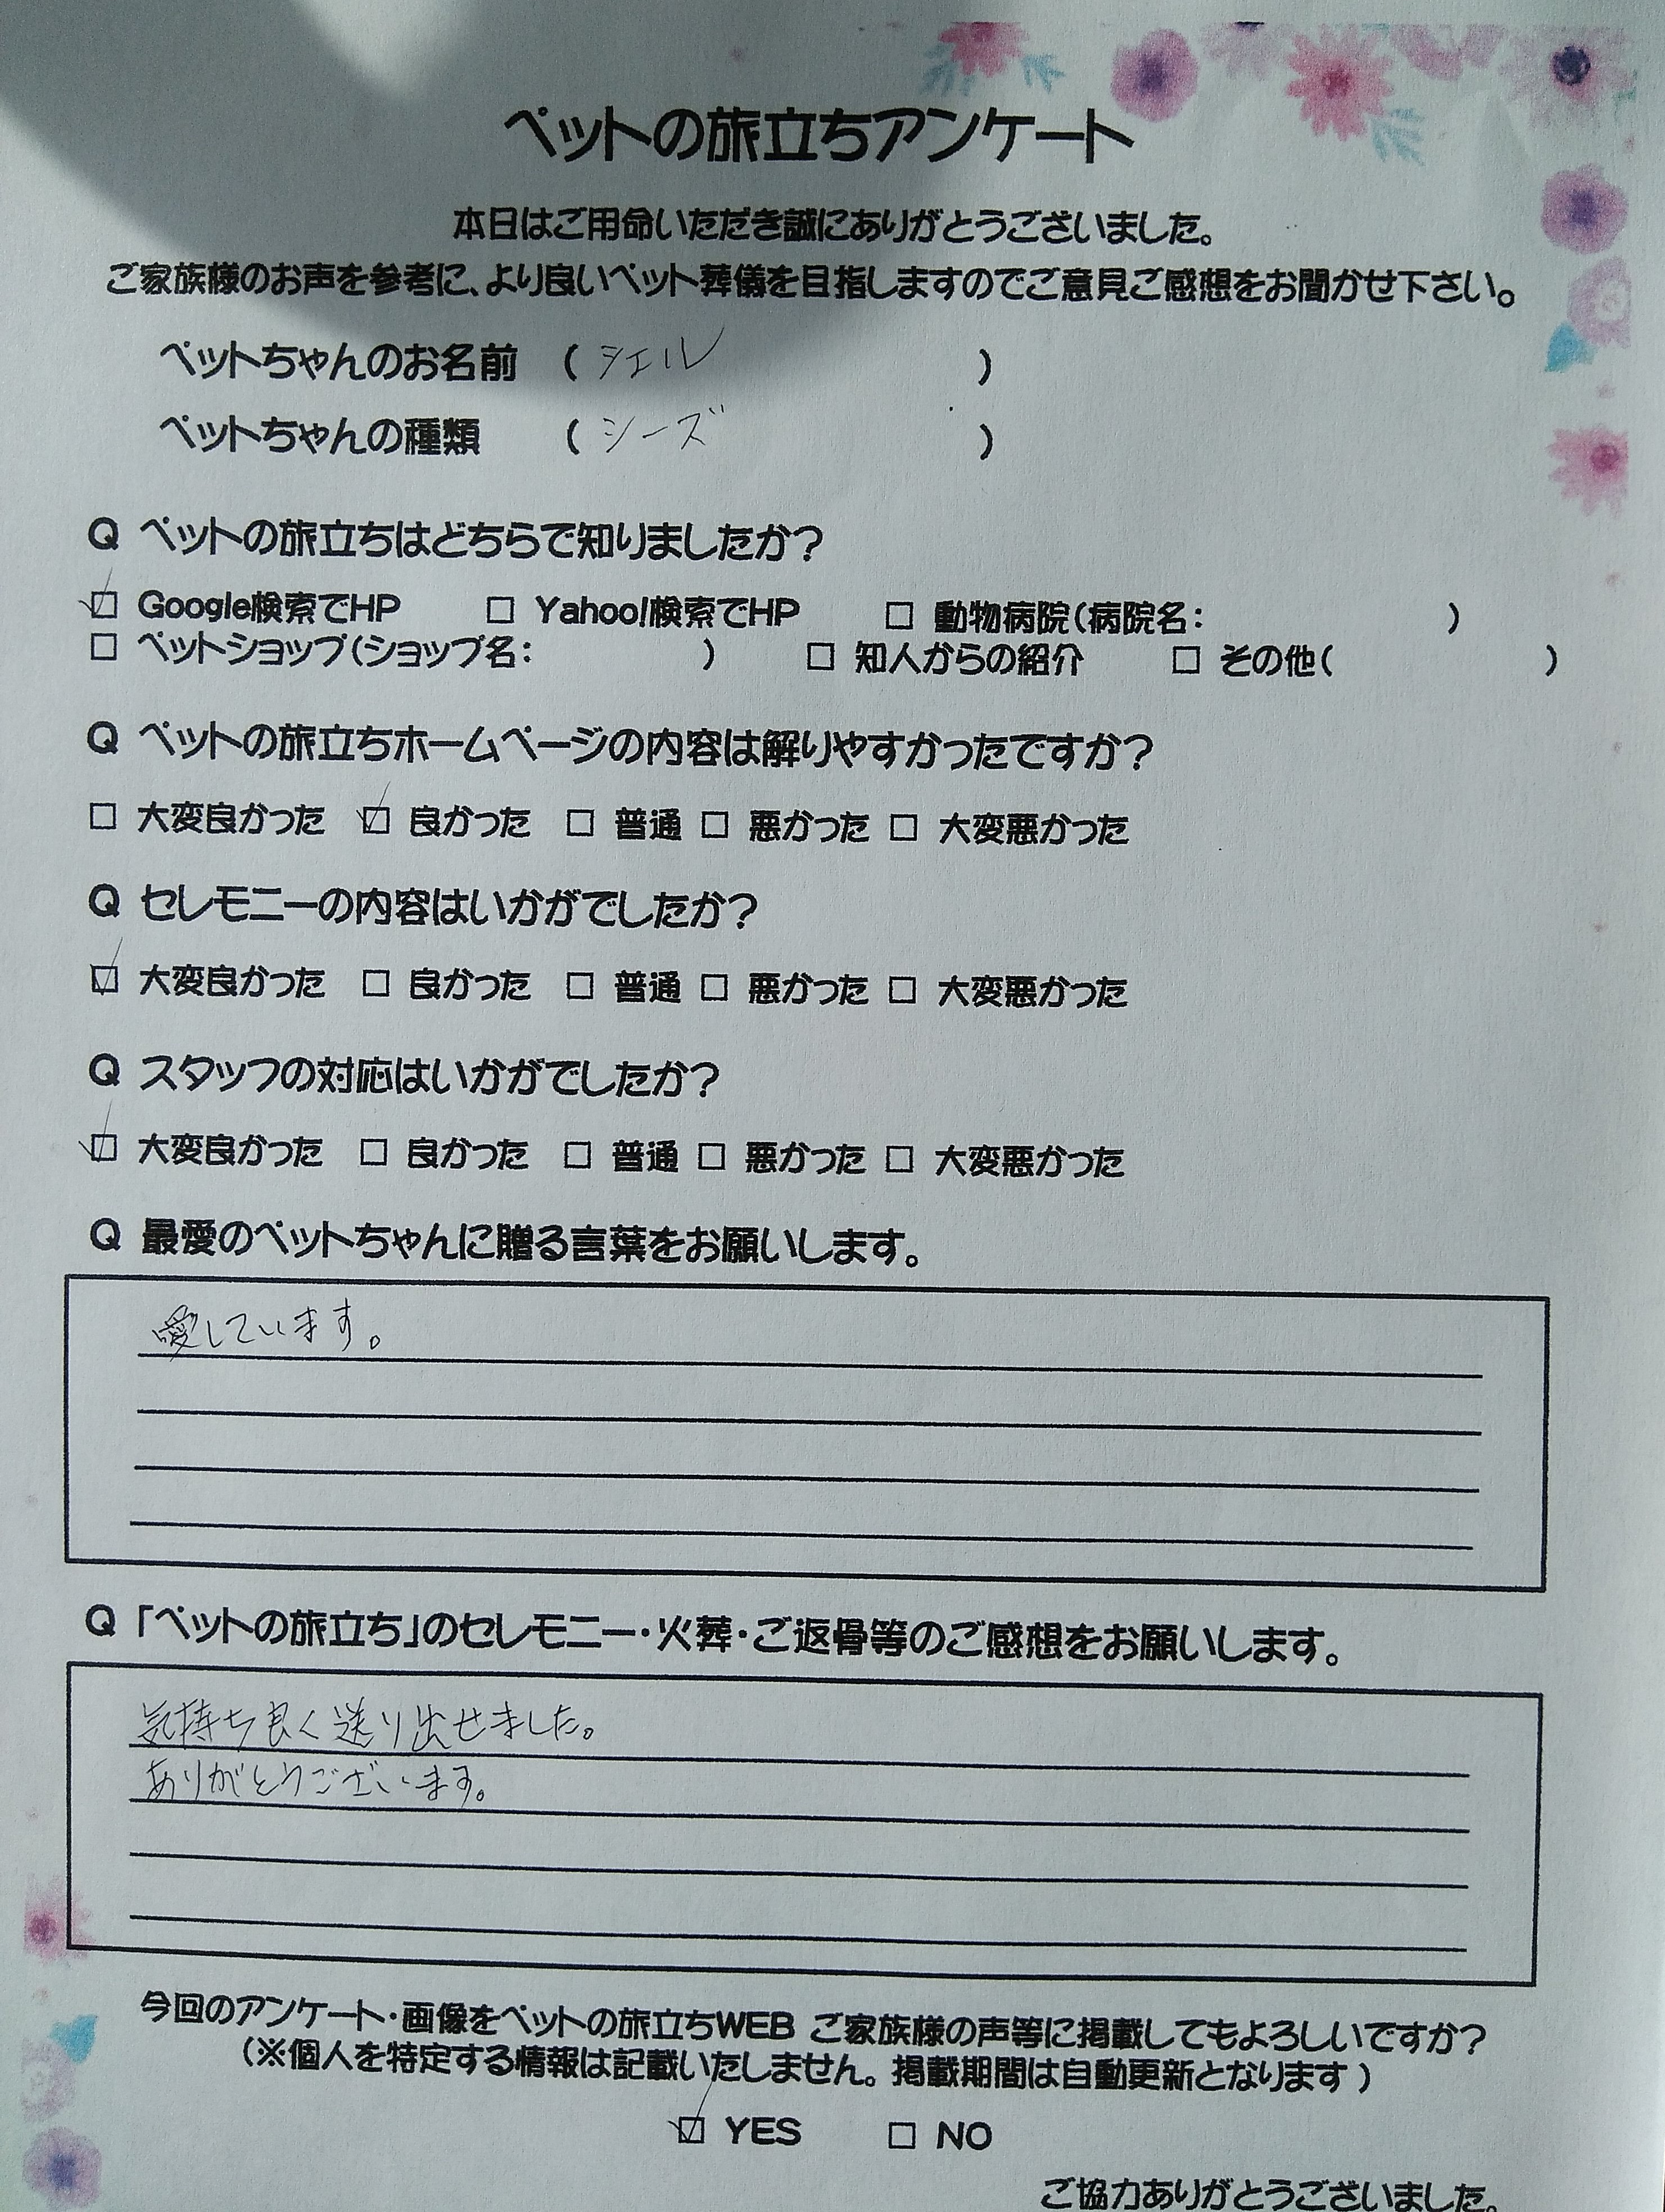 ペットの旅立ちアンケート
本日はご用命いただき誠にありがとうございました。
ご家族様のお声を参考に、より良いペット葬儀を目指しますのでご意見ご感想をお聞かせ下さい。
ペットちゃんのお名前 ( シエル )
ペットちゃんの種類 ( シーズ )
Q ペットの旅立ちはどちらで知りましたか?
☑ Google検索でHP □ Yahoo!検索でHP □ 動物病院(病院名: )
□ ペットショップ(ショップ名: ) □ 知人からの紹介 □ その他( )
Q ペットの旅立ちホームページの内容は解りやすかったですか?
□ 大変良かった ☑ 良かった □ 普通 □ 悪かった □ 大変悪かった
Q セレモニーの内容はいかがでしたか?
☑ 大変良かった □ 良かった □ 普通 □ 悪かった □ 大変悪かった
Q スタッフの対応はいかがでしたか?
☑ 大変良かった □ 良かった □ 普通 □ 悪かった □ 大変悪かった
Q 最愛のペットちゃんに贈る言葉をお願いします。
愛しています。
Q 「ペットの旅立ち」のセレモニー・火葬・ご返骨等のご感想をお願いします。
気持ち良く送り出せました。
ありがとうございます。
今回のアンケート・画像をペットの旅立ちWEB ご家族様の声等に掲載してもよろしいですか?
(※個人を特定する情報は記載いたしません。掲載期間は自動更新となります)
☑ YES □ NO
ご協力ありがとうございました。